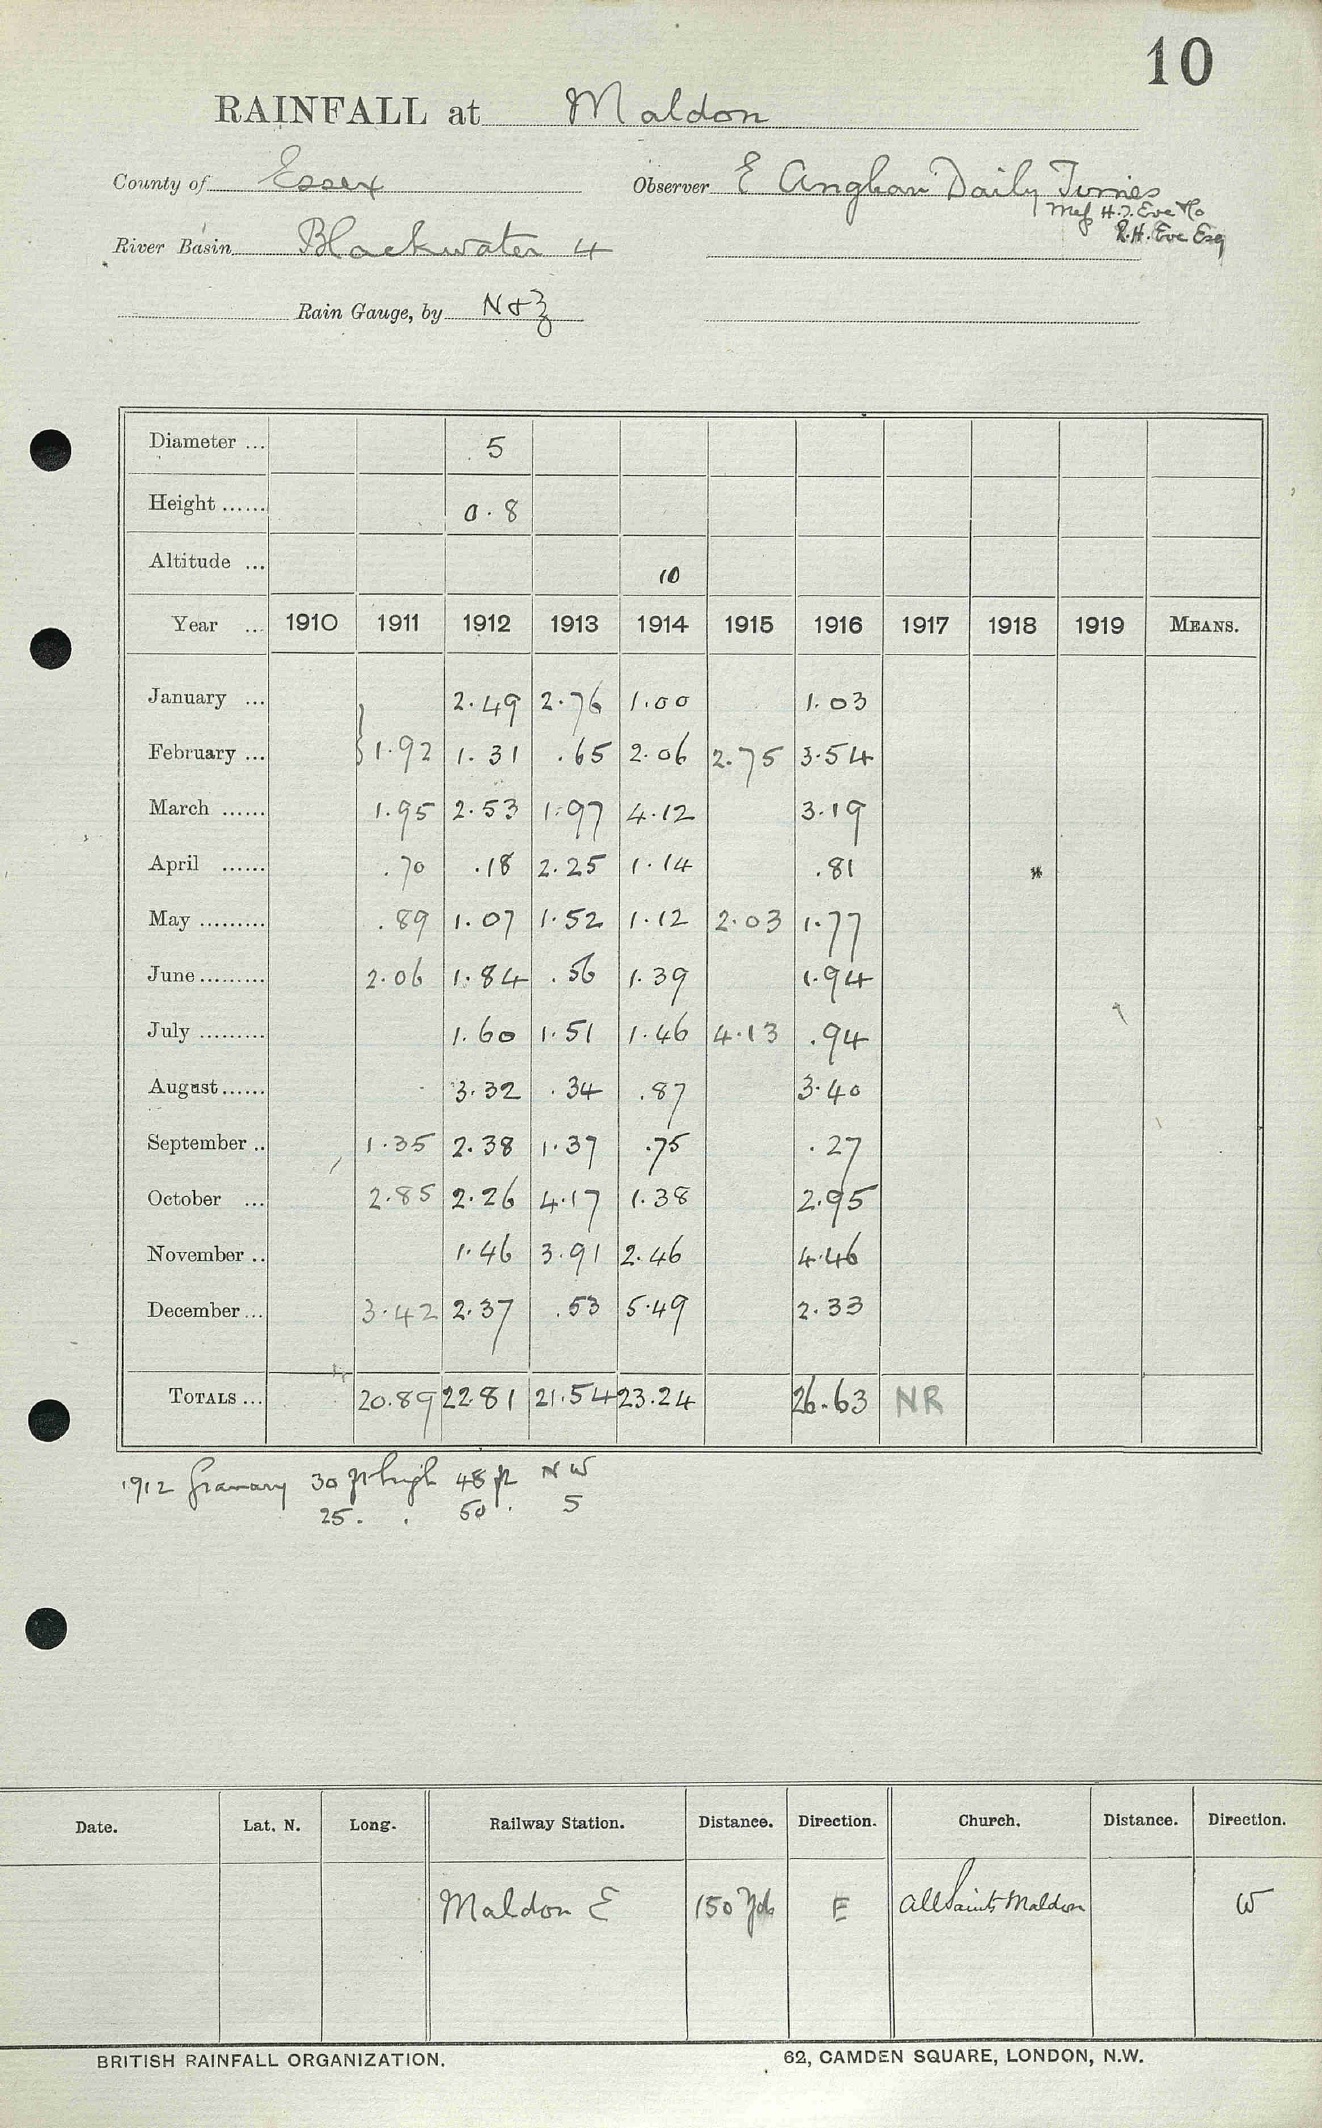 10
RAINFALL at Maldon
County of Essex Observer E Anglian Daily Times
River Basin Blackwater 4 H.T. Eve
R.H. Eve Esq
Rain Gauge, by N & Z
Diameter ... 5
Height ...... 0.8
Altitude ... 10
Year ... 1910 1911 1912 1913 1914 1915 1916 1917 1918 1919 MEANS.
January ... 2.49 2.76 1.00 1.03
February ... } 1.92 1.31 .65 2.06 2.75 3.54
March ...... 1.95 2.53 1.97 4.12 3.19
April ...... .70 .18 2.25 1.14 .81
May ......... .89 1.07 1.52 1.12 2.03 1.77
June ......... 2.06 1.84 .56 1.39 1.94
July ......... 1.60 1.51 1.46 4.13 .94
August ...... 3.32 .34 .87 3.40
September .. 1.35 2.38 1.37 .75 .27
October ... 2.85 2.26 4.17 1.38 2.95
November .. 1.46 3.91 2.46 4.46
December ... 3.42 2.37 .53 5.49 2.33
TOTALS ... 20.89 22.81 21.54 23.24 26.63 NR
1912 Granary 30 ft high 48 ft NW
25 . . 50 . S
Date. Lat. N. Long. Railway Station. Distance. Direction. Church. Distance. Direction.
Maldon E 150 Yds E All Saints Maldon W
BRITISH RAINFALL ORGANIZATION. 62, CAMDEN SQUARE, LONDON, N.W.